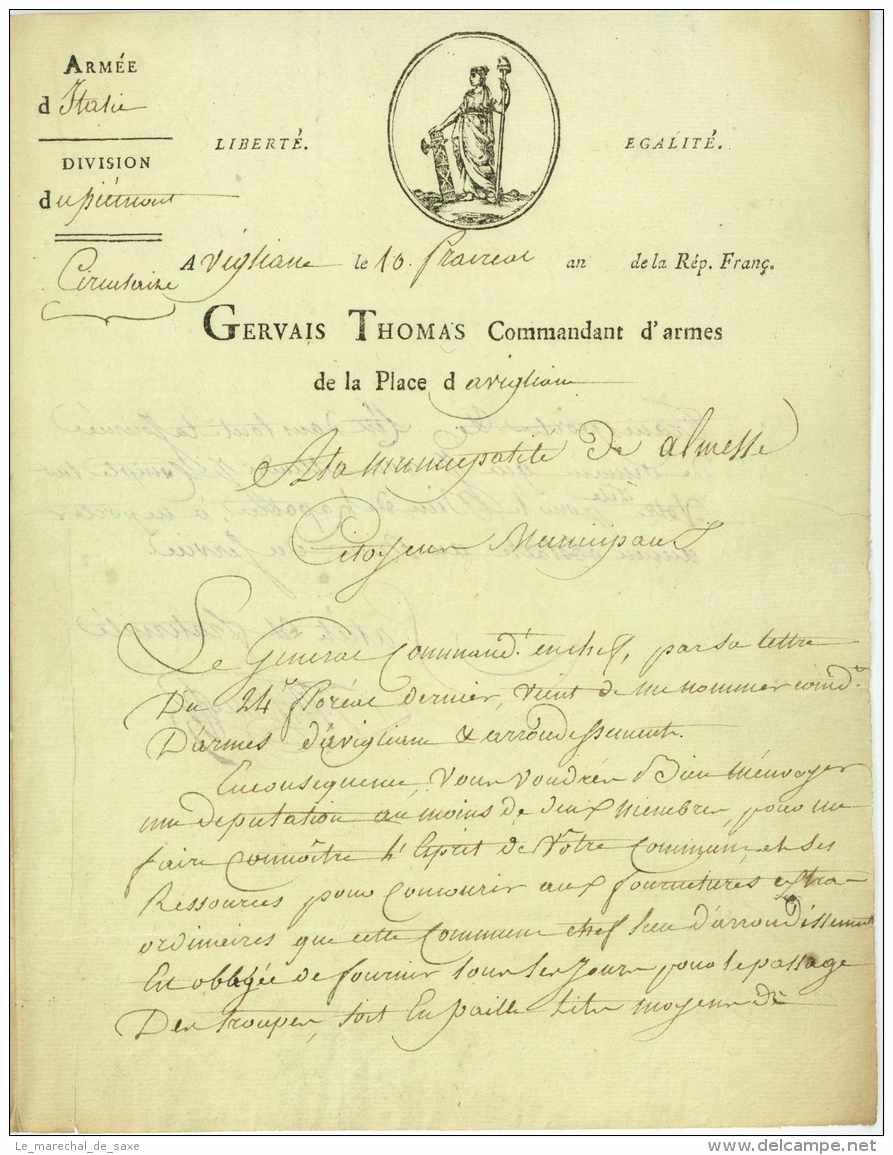 ARMÉE
d'Italie
DIVISION
du piémont
Circulaire
LIBERTÉ.
EGALITÉ.
A Vigliane le 10. Prairéal an de la Rép. Franç.
GERVAIS THOMAS Commandant d'armes
de la Place d avigliane
A la municipalité De almesse
Citoyens Municipaux
Le General Commandt. en chef, par sa lettre
Du 24. floréal dernier, vient de me nommer comdt.
D'armes d'avigliane & arrondissement.
En consequence, Vous voudrés Bien m'envoyer
une deputation au moins de deux membres, pour me
faire Connoître l'Esprit de Vôtre Commune, et Ses
Ressources pour Concourir aux fournitures extra-
ordinaires que cette Commune chef lieu d'arrondissement
Est obligée de fournir tous les Jours pour le passage
Des troupes, soit En paille lits moyens de
Le_marechal_de_saxe
www.delcampe.net